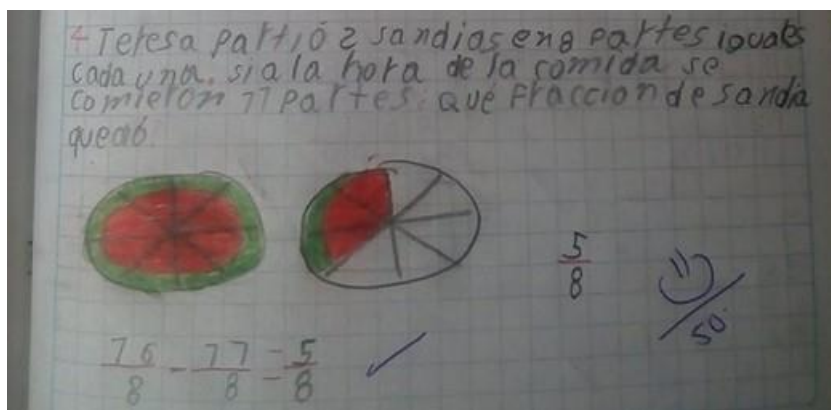 4 Teresa partió 2 sandias en 8 partes iguales
cada una. si a la hora de la comida se
comieron 11 partes. Qué fraccion de sandia
quedó.
5
8
16/8 - 11/8 = 5/8
50